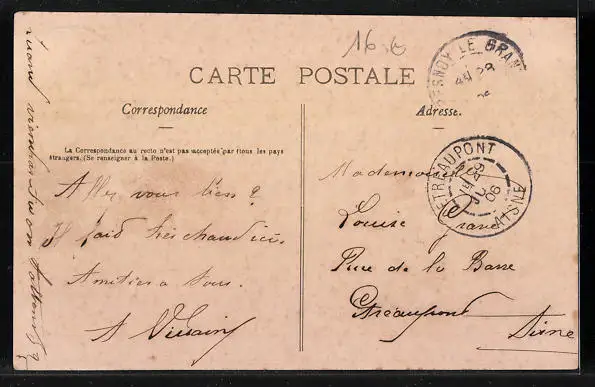 16.
CARTE POSTALE
Correspondance
Adresse.
La Correspondance au recto n'est pas acceptée par tous les pays
étrangers. (Se renseigner à la Poste.)
Allez vous bien ?
Il faid très chaud ici
Amitiés a tous.
A Villain
Quand viendrez
on
?
Mademoiselle
Louise
Rue de la Barre
Etréaupont
Aisne
LE GRAN
28
ETRÉAUPONT
29
06
AISNE